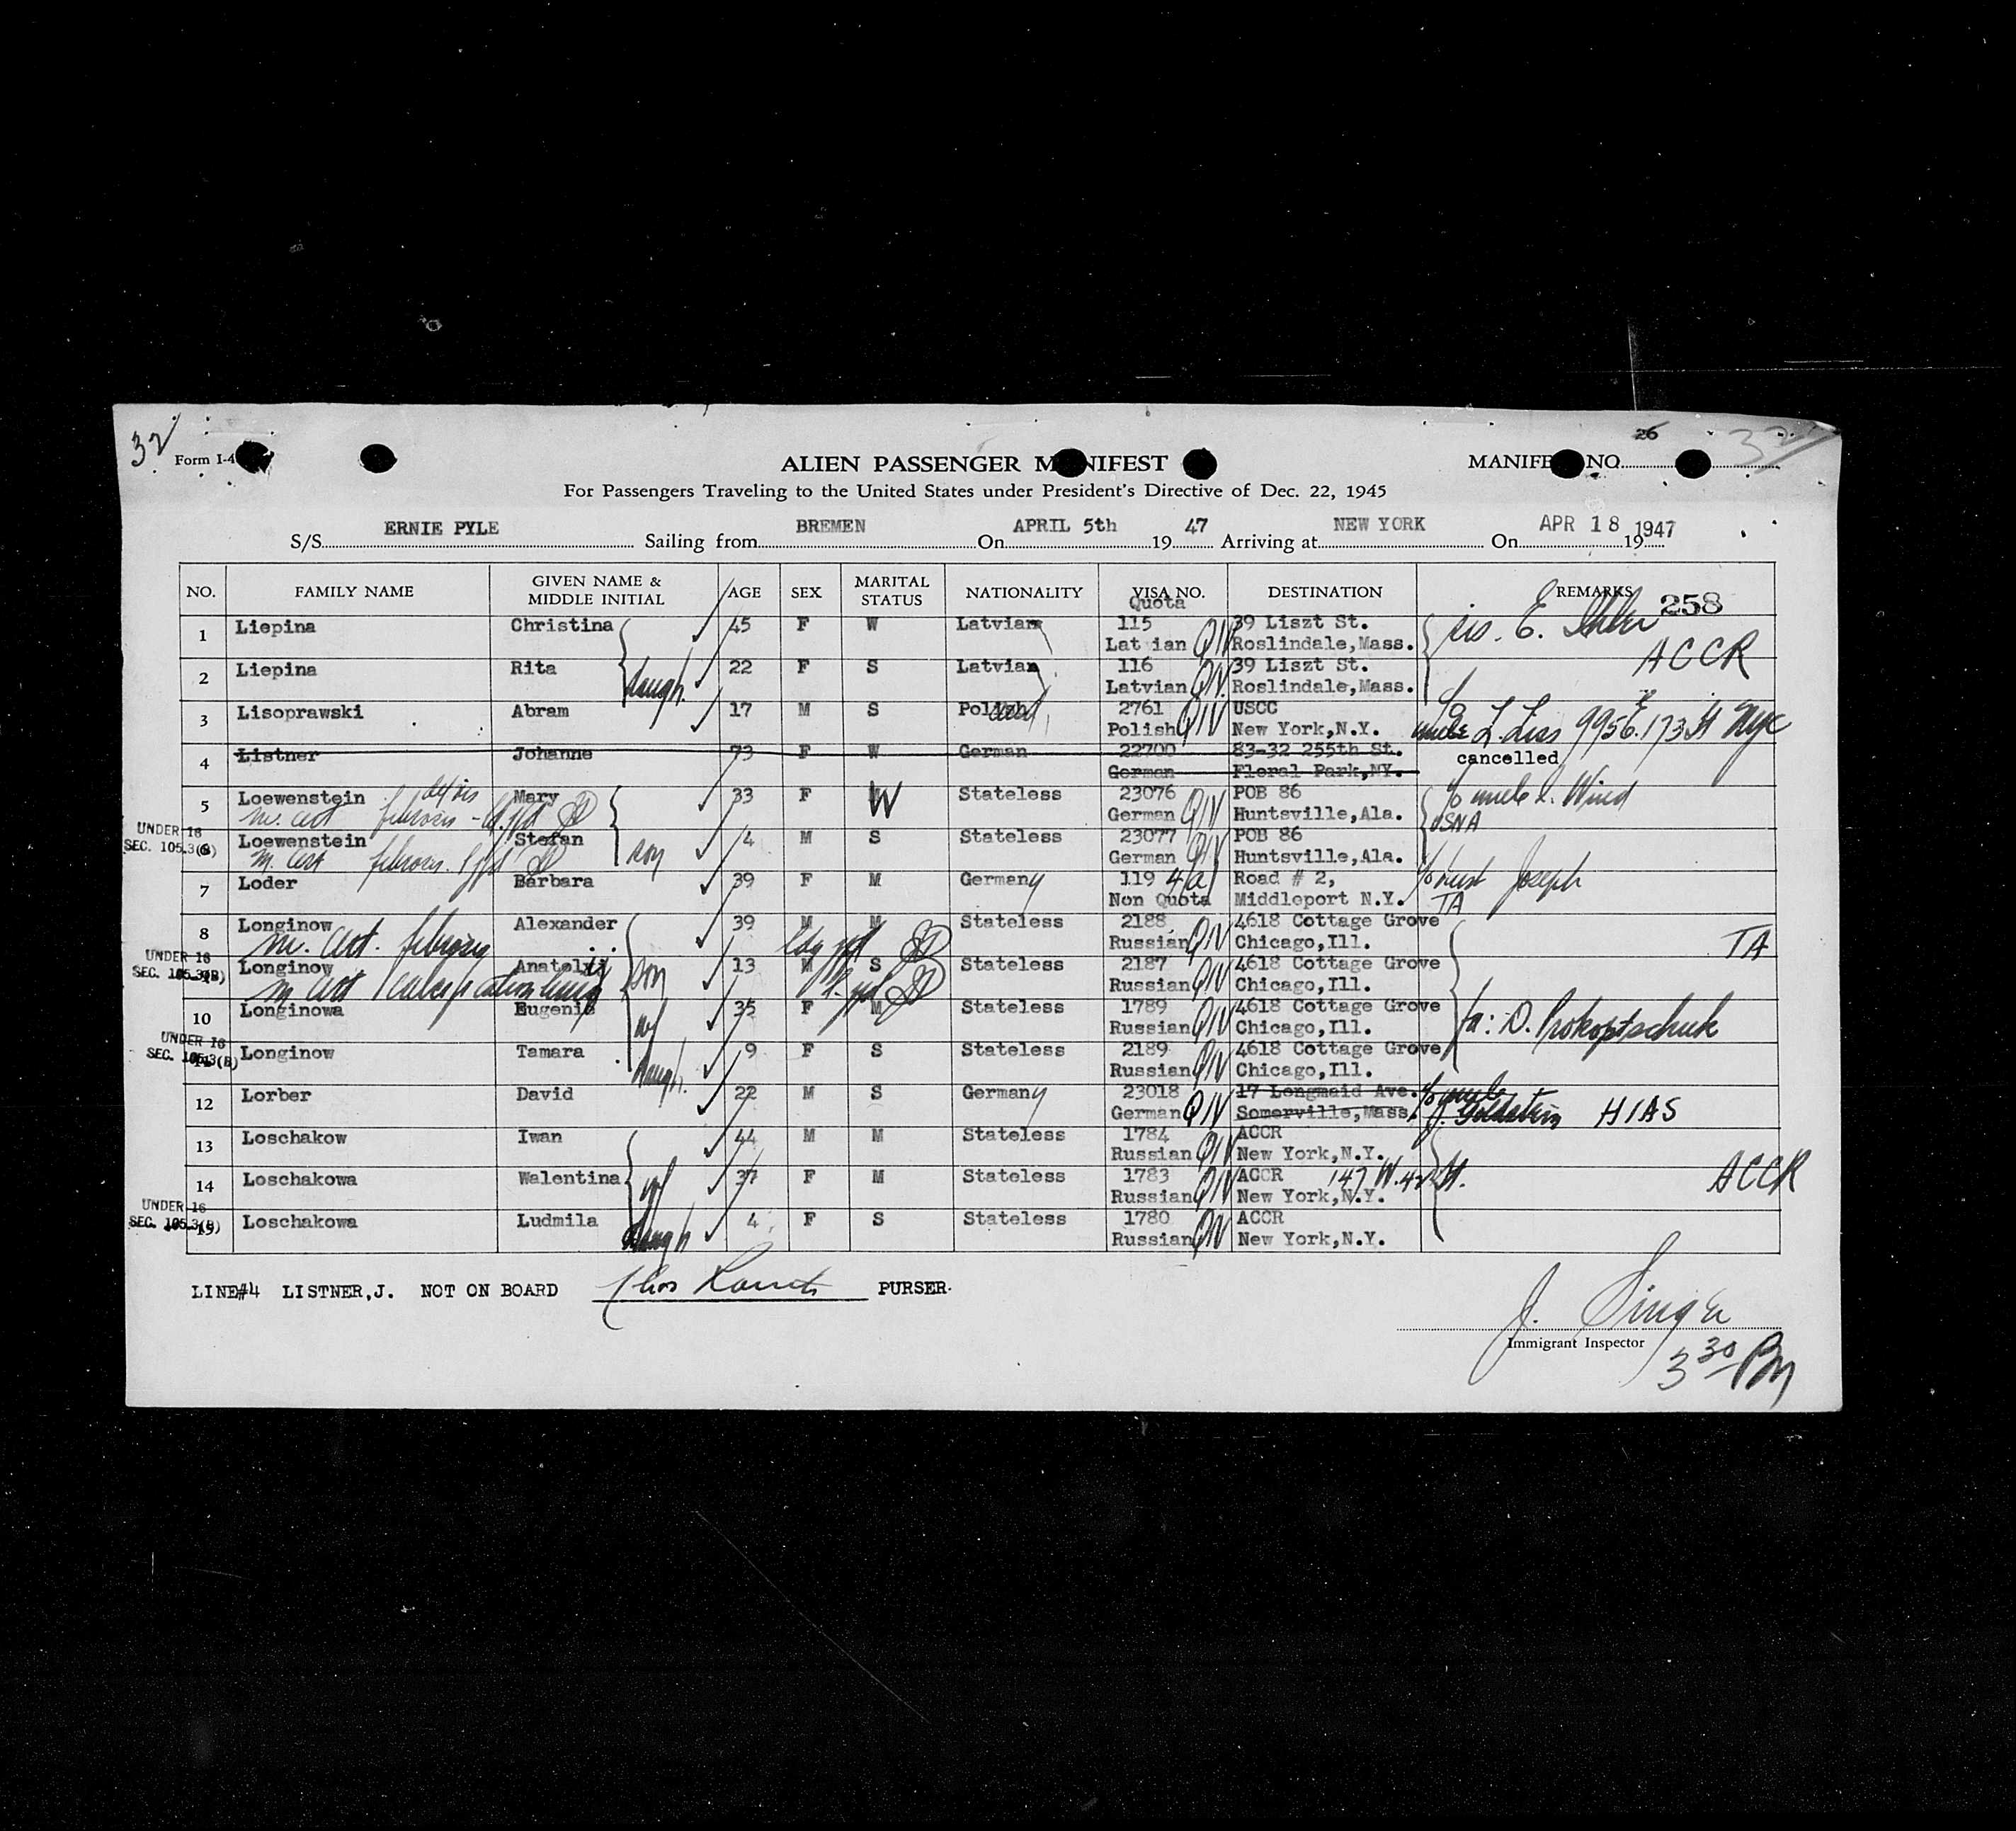 32
26
32
Form I-4
ALIEN PASSENGER M NIFEST
MANIFE NO
For Passengers Traveling to the United States under President's Directive of Dec. 22, 1945
S/S ERNIE PYLE Sailing from BREMEN On APRIL 5th 19 47 Arriving at NEW YORK On APR 18 1947 19
NO. FAMILY NAME GIVEN NAME & MIDDLE INITIAL AGE SEX MARITAL STATUS NATIONALITY VISA NO. DESTINATION REMARKS 258
Quota
1 Liepina Christina 45 F W Latvian 115 39 Liszt St. sis. E.
Lat ian QIV Roslindale, Mass. ACCR
2 Liepina Rita daugh. 22 F S Latvian 116 39 Liszt St.
Latvian QIV Roslindale, Mass.
3 Lisoprawski Abram 17 M S Polish 2761 USCC to
Polish QIV New York, N.Y. uncle L. Liss 995 E. 173 St NYC
4 Listner Johanne 73 F W German 22700 83-32 255th St. cancelled
German Floral Park, NY.
5 Loewenstein Mary 33 F W Stateless 23076 POB 86 to uncle L. Wind
m. cert fibrosis German QIV Huntsville, Ala. USNA
UNDER 16
SEC. 105.3(B) Loewenstein Stefan son 4 M S Stateless 23077 POB 86
m. cert fibrosis German QIV Huntsville, Ala.
7 Loder Barbara 39 F M Germany 119 4(a) Road # 2, to husb Joseph
Non Quota Middleport N.Y. TA
8 Longinow Alexander 39 M M Stateless 2188 4618 Cottage Grove
m. cert. fibrosis Russian QIV Chicago, Ill. TA
UNDER 16
SEC. 105.3(B) Longinow Anatolij son 13 M S Stateless 2187 4618 Cottage Grove
m cert calcification lung Russian QIV Chicago, Ill.
10 Longinowa Eugenie wf 35 F M Stateless 1789 4618 Cottage Grove
Russian QIV Chicago, Ill. fr: D. Prokoptschuk
UNDER 16
SEC. 105.3(B) Longinow Tamara daugh. 9 F S Stateless 2189 4618 Cottage Grove
Russian QIV Chicago, Ill.
12 Lorber David 22 M S Germany 23018 17 Longmaid Ave. to uncle
German QIV Somerville, Mass. J. Goldstein HIAS
13 Loschakow Iwan 44 M M Stateless 1784 ACCR
Russian QIV New York, N.Y.
14 Loschakowa Walentina wf 37 F M Stateless 1783 ACCR 147 W. 42 St. ACCR
Russian QIV New York, N.Y.
UNDER 16
SEC. 105.3(B) 15 Loschakowa Ludmila daugh 4 F S Stateless 1780 ACCR
Russian QIV New York, N.Y.
LINE#4 LISTNER, J. NOT ON BOARD PURSER.
J. Singer
Immigrant Inspector
3 30 PM